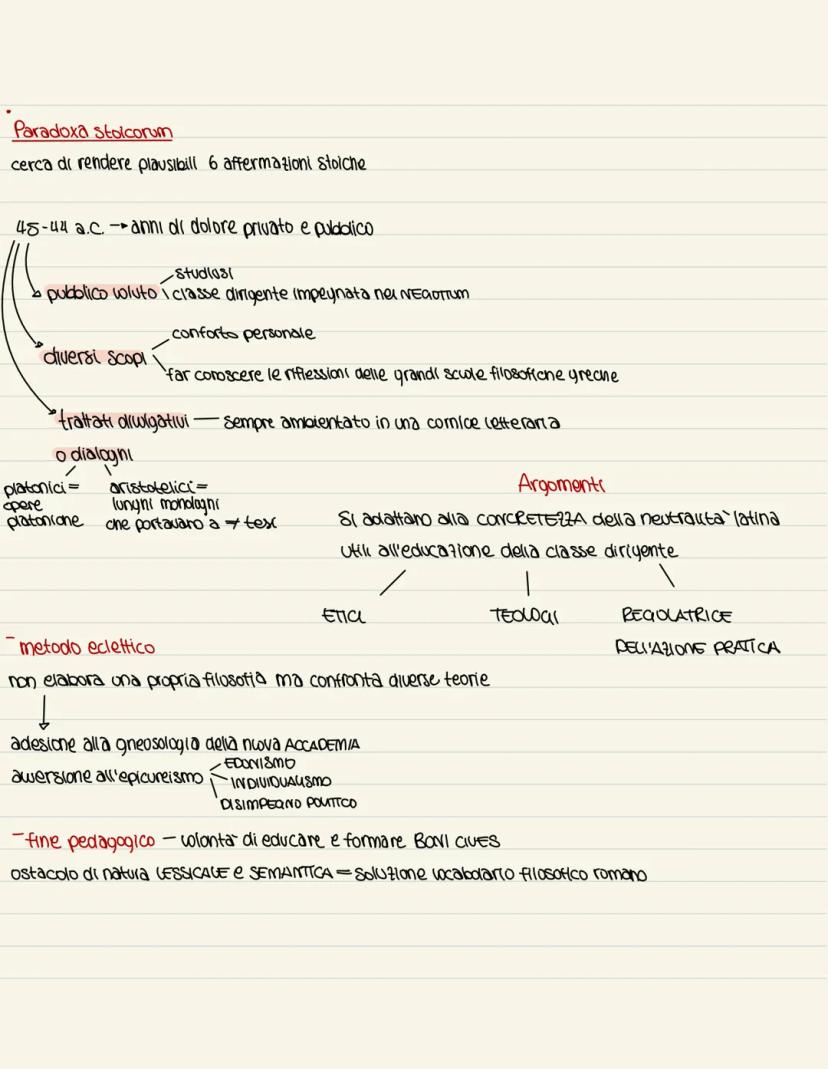 Paradoxa stoicorum
cerca di rendere plausibili 6 affermazioni stoiche
45-44 a.C. → anni di dolore privato e pubblico
studiosi
pubblico colto
classe dirigente impegnata nel NEGOTIUM
conforto personale
diversi scopi
far conoscere le riflessioni delle grandi scuole filosofiche greche
trattati divulgativi — sempre ambientato in una cornice letteraria
o dialoghi
platonici = aristotelici =
opere lunghi monologhi
platoniche che portavano a ≠ tesi
Argomenti
Si adattano alla CONCRETEZZA della neutralità latina
utili all'educazione della classe dirigente
ETICI TEOLOGI REGOLATRICE
DELL'AZIONE PRATICA
- metodo eclettico
non elabora una propria filosofia ma confronta diverse teorie
adesione alla gneosologia della nuova ACCADEMIA
EDONISMO
avversione all'epicureismo
INDIVIDUALISMO
DISIMPEGNO POLITICO
- fine pedagogico — volontà di educare e formare BONI CIVES
ostacolo di natura LESSICALE e SEMANTICA = soluzione vocabolario filosofico romano